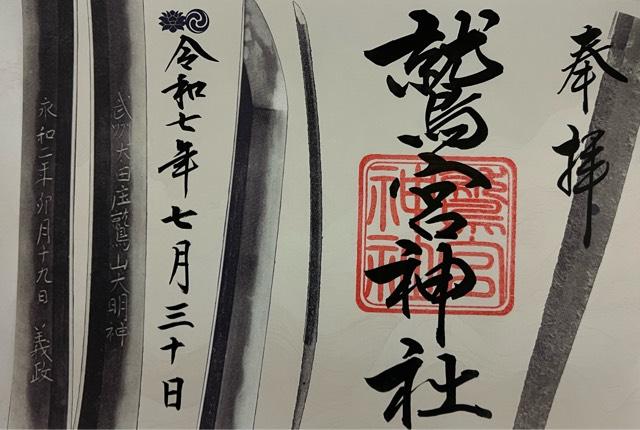 奉拝
鷲宮神社
鷲宮
神社
令和七年七月三十日
武州太田庄鷲山大明神
永和二年卯月十九日 義政